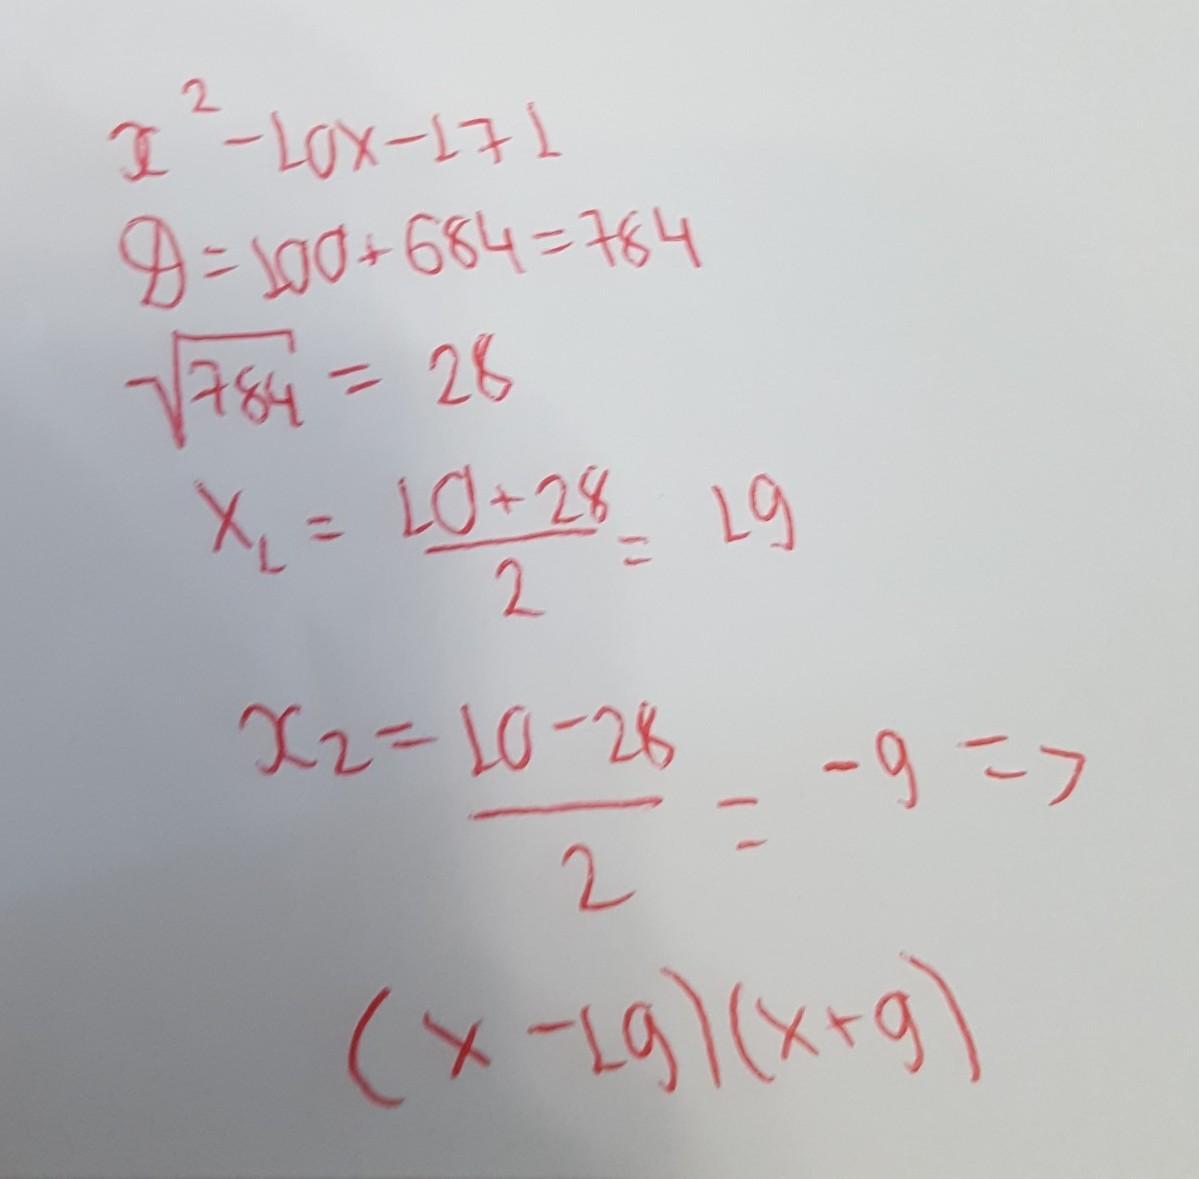 x² -10x-171
D=100+684=784
√784 = 28
x₁ = 10+28/2 = 19
x₂ = 10-28/2 = -9 =>
(x-19)(x+9)